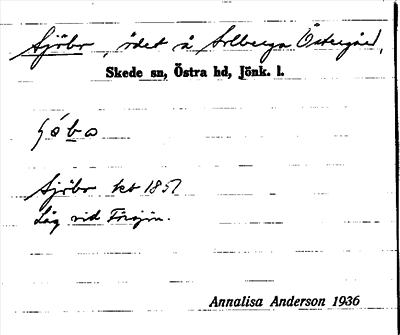 Sjöbo, ödet å Solberga Östergård,
Skede sn, Östra hd, Jönk. l.
Sjöbo kb 1851
Låg vid Försjön.
Annalisa Anderson 1936